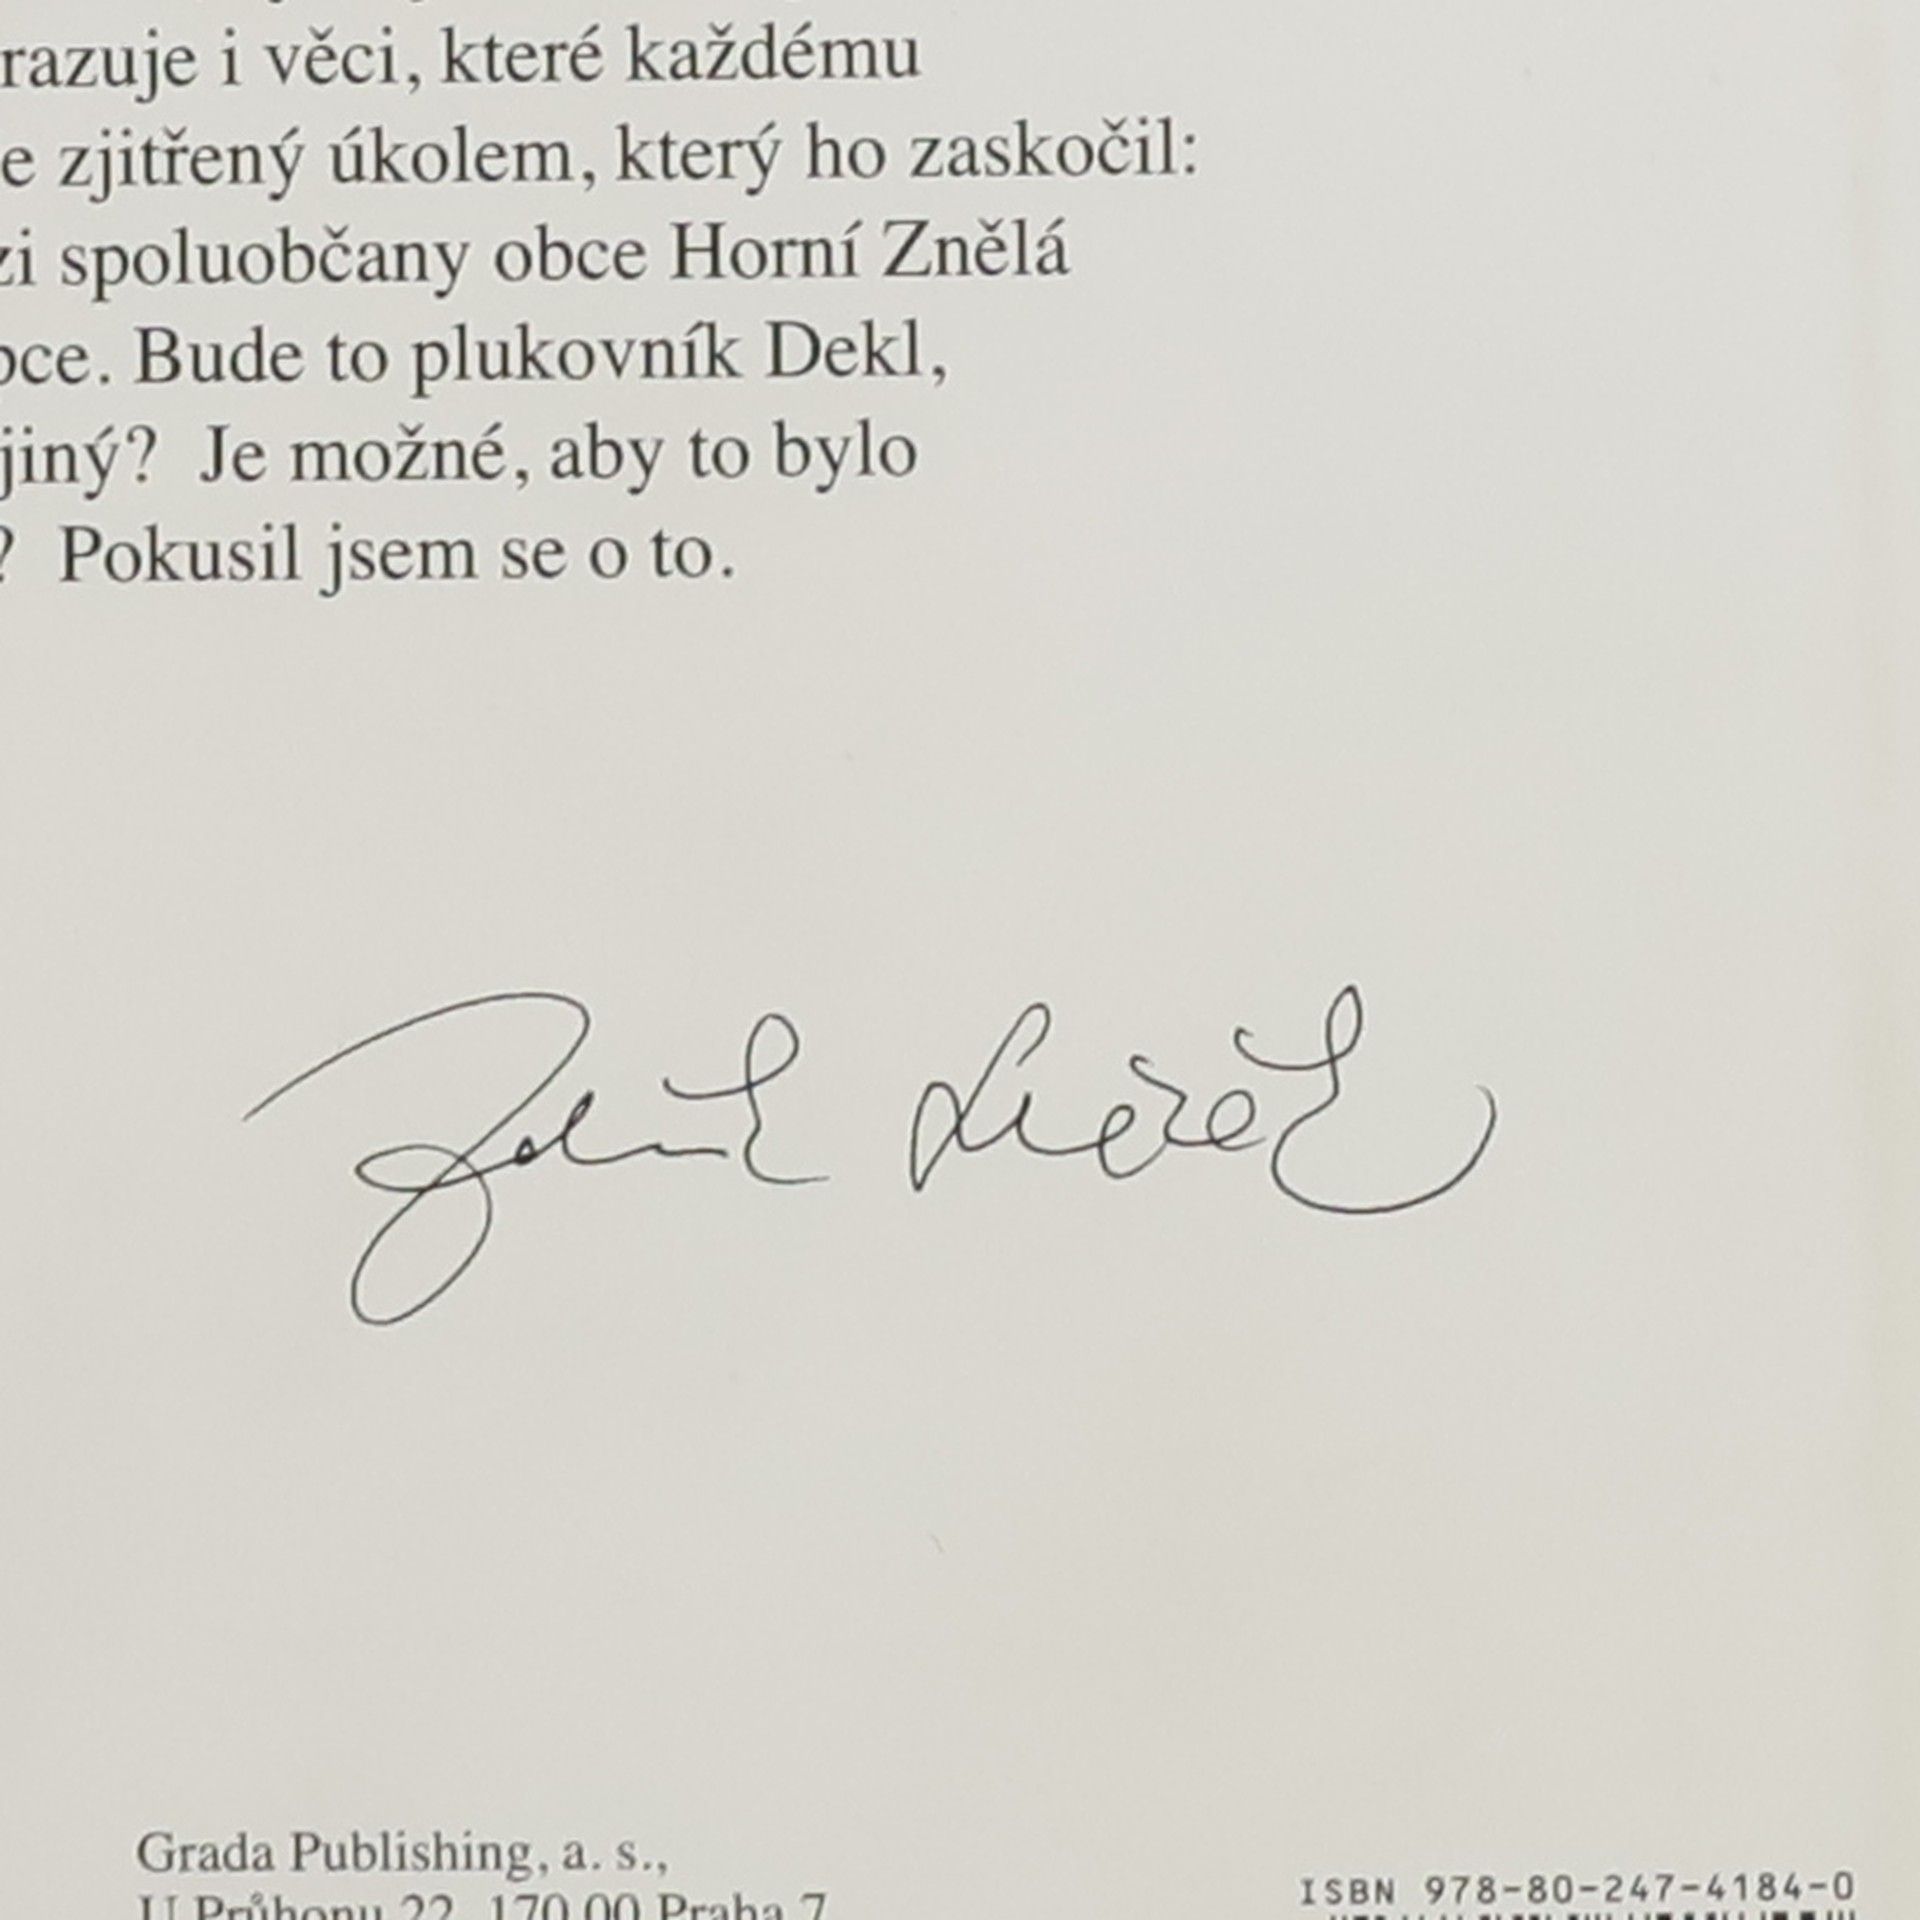 razuje i věci, které každému
e zjitřený úkolem, který ho zaskočil:
zi spoluobčany obce Horní Znělá
bce. Bude to plukovník Dekl,
jiný? Je možné, aby to bylo
? Pokusil jsem se o to.
Grada Publishing, a. s.,
U Průhonu 22, 170 00 Praha 7
ISBN 978-80-247-4184-0